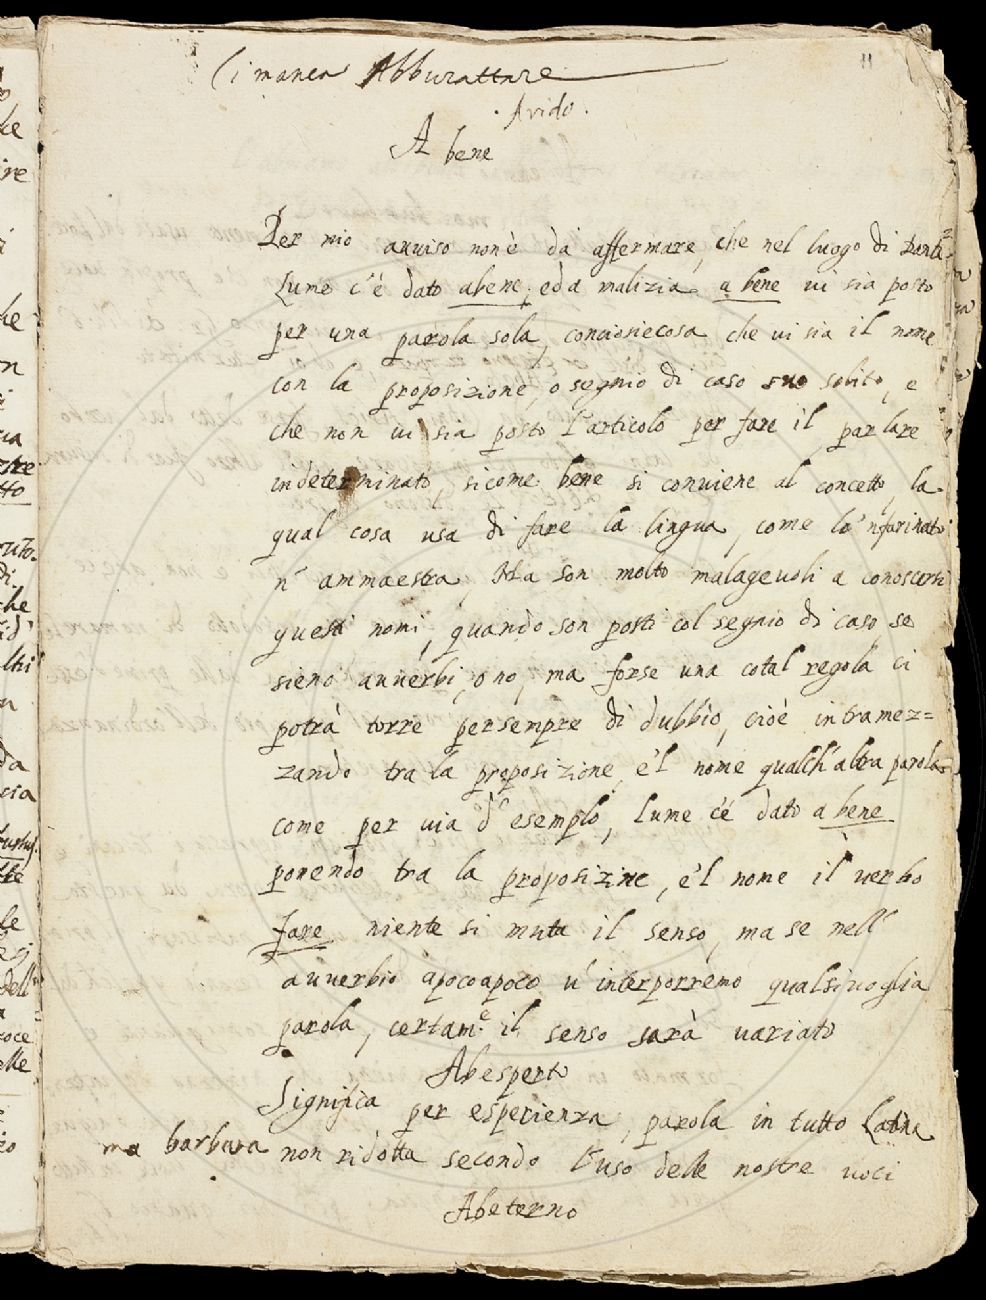 11
Ci manca Abburattare
. Arido .
A bene
Per mio avviso non è da affermare, che nel luogo di Dante
Lume c'è dato abene, ed a malizia a bene vi sia posto
per una parola sola, conciosiecosa che vi sia il nome
con la proposizione, o segnio di caso suo solito, e
che non vi sia posto l'articolo per fare il parlare
indeterminato, sicome bene si conviene al concetto, la
qual cosa usa di fare la lingua, come lo 'nfarinato
n' ammaestra, Ma son molto malagevoli a conoscersi
questi nomi, quando son posti col segnio di caso se
sieno avverbi, o no, ma forse una cotal regola ci
potrà torre per sempre di dubbio, cioè intramez=
zando tra la proposizione, e'l nome qualch'altra parola
come per via d' esempio, lume c'è dato a bene
ponendo tra la proposizine, e'l nome il verbo
fare niente si muta il senso, ma se nell'
avverbio apocoapoco v' interporremo qualsivoglia
parola, certam.e il senso sarà variato
Abesperto
Significa per esperienza, parola in tutto Latina
ma barbara non ridotta secondo l'uso delle nostre voci
Abeterno